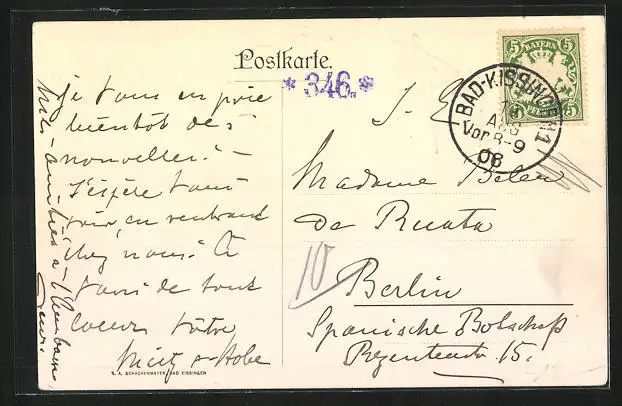 Postkarte.
* 346. *
5 BAYERN 5
5 5
BAD-KISSINGEN 1
AUG
Vor 8-9
08
je vous en prie
bientôt des
nouvelles! –
J'espère vous
voir, en rentrant
chez nous! A
vous de tout
coeur votre
Madame Belen
de Ruata
10
Berlin
Spanische Botschaft
Regentenstr. 15.
S. A. SCHACHENMAYER, BAD KISSINGEN